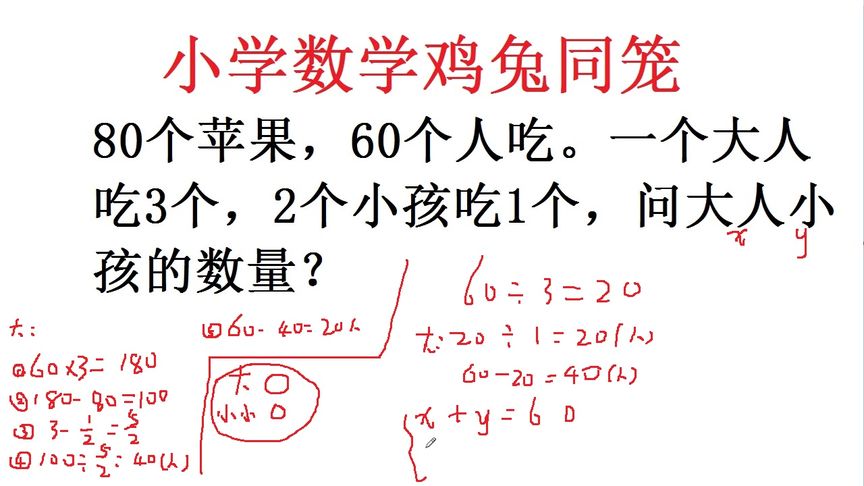 小学数学鸡兔同笼
80个苹果，60个人吃。一个大人
吃3个，2个小孩吃1个，问大人小
孩的数量？
x y
大：
①60×3=180
②180-80=100
③3-1/2=5/2
④100÷5/2=40(人)
⑤60-40=20人
大 〇
小小 〇
60÷3=20
大:20÷1=20(人)
60-20=40(人)
x+y=60